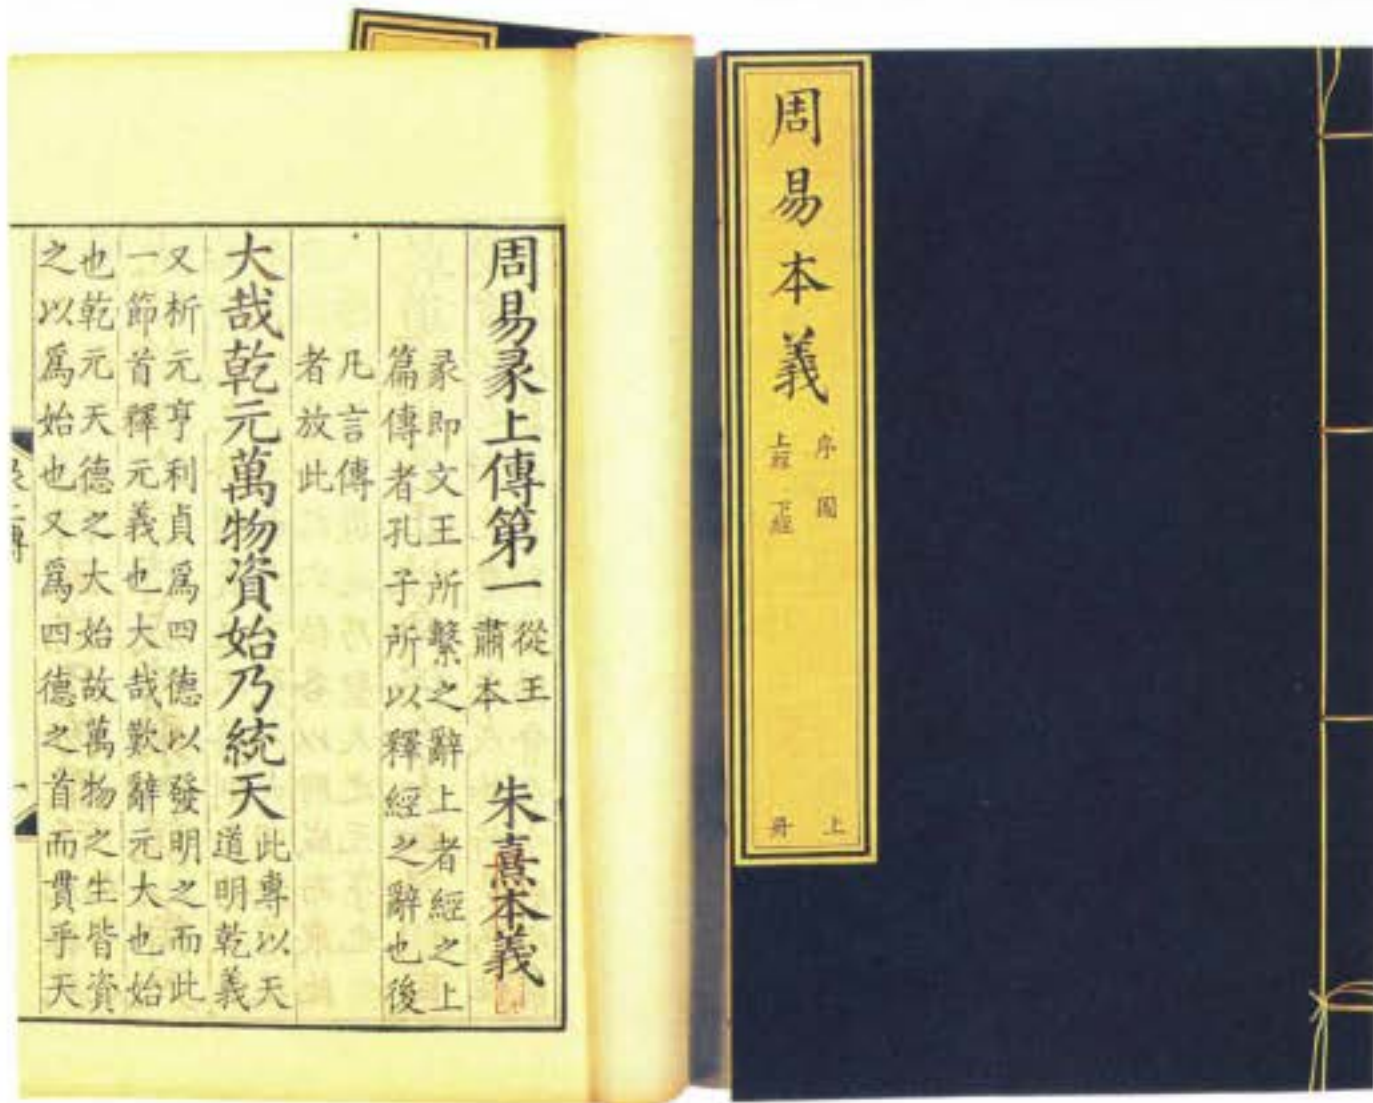 周易本義
序圖
上經 下經
上
冊
周易彖上傳第一
從王
肅本
朱熹本義
彖即文王所繫之辭上者經之上
篇傳者孔子所以釋經之辭也後
凡言傳
者放此
大哉乾元萬物資始乃統天
此專以天
道明乾義
又析元亨利貞爲四德以發明之而此
一節首釋元義也大哉歎辭元大也始
也乾元天德之大始故萬物之生皆資
之以爲始也又爲四德之首而貫乎天
彖上傳